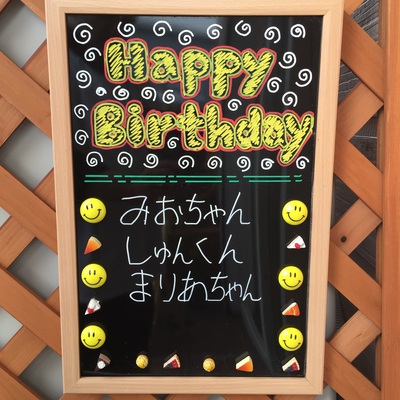 Happy
Birthday
みおちゃん
しゅんくん
まりあちゃん